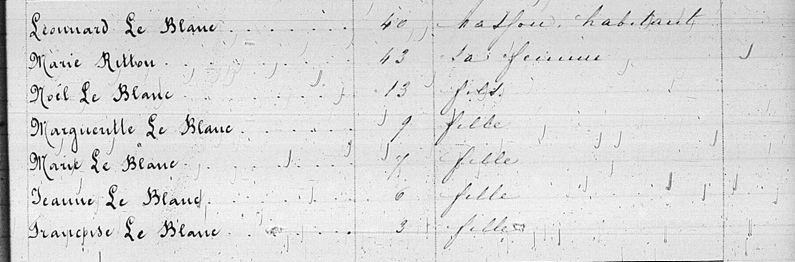 Léonnard Le Blanc 40 masson, habitant
Marie Ritton 43 sa femme
Noël Le Blanc 13 fils.
Margueritte Le Blanc 9 fille
Marie Le Blanc 7 fille
Jeanne Le Blanc 6 fille
Françoise Le Blanc 3 fille